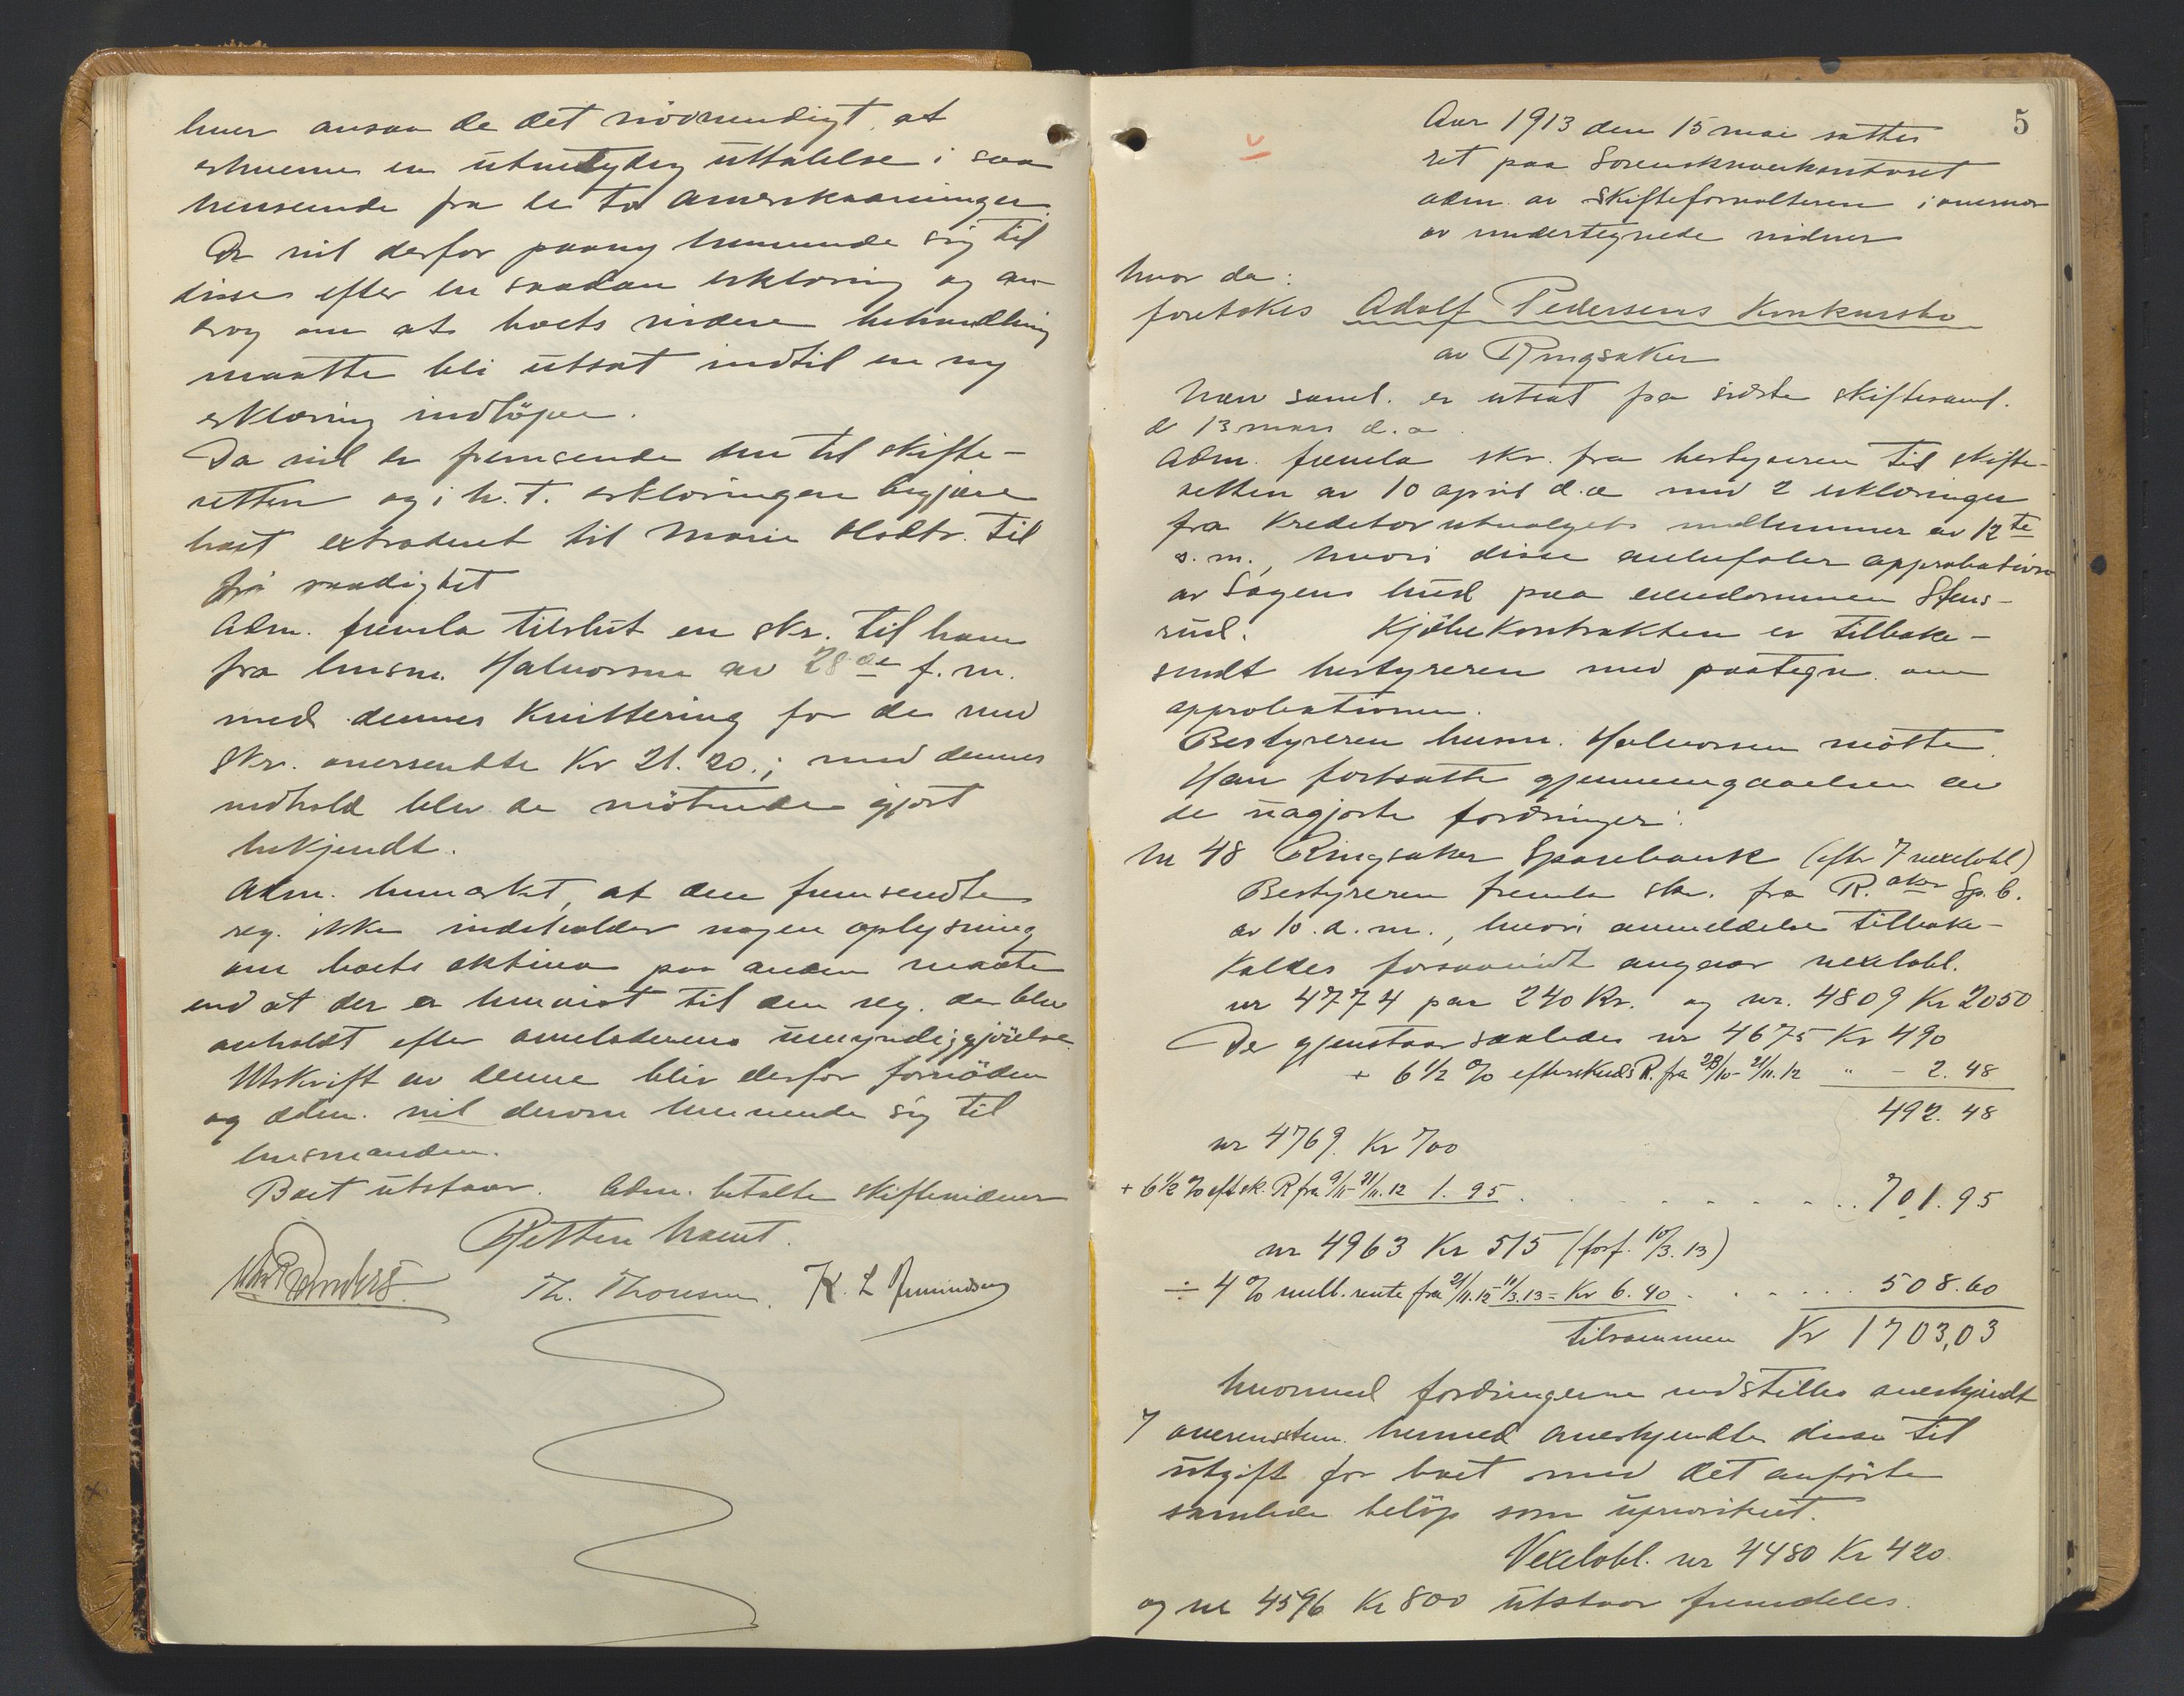 hver ansaa de det nödvendigt, at
erhverve en utvetydig uttalelse i saa
henseende fra de to amerikaaninger.
De vil derfor paany henvende sig til
disse efter en saadan erklæring og an-
drog om at boets videre behandling
maatte bli utsat indtil en ny
erklæring indlöper.
Da vil de fremsende den til skifte-
retten og i h. t. erklæringen begjære
boet extraderet til Marie Olsdtr. til
fri raadighet
Adm. fremla tilslut en skr. til ham
fra lensm. Halvorsen av 28de f. m.
med dennes kvittering for de med
skr. oversendte Kr 21.20.; med dennes
indhold blev de mötende gjort
bekjendt.
Adm. bemerket, at den fremsendte
reg. ikke indeholder nogen oplysning
om boets aktiva paa anden maate
end at der er henvist til den reg. der blev
avholdt efter avelederens umyndiggjörelse.
Utskrift av denne blir derfor fornöden
og adm. vil derom henvende sig til
lensmanden.
Boet utstaar. Adm. betalte skiftevidner
Retten hævet.
Th. Thonsen. K. L Amundsen
5
Aar 1913 den 15 mai sattes
ret paa Sorenskriverkontoret
adm. av skifteforvalteren i overvær
av undertegnede vidner
hvor da:
foretokes Adolf Pedersens Konkursbo
av Ringsaker
Nærv. saml. er utsat fra sidste skiftesaml.
d 13 mars d. a.
Adm. fremla skr. fra bestyreren til skifte-
retten av 10 april d. a med 2 erklæringer
fra Kreditorutvalgets medlemmer av 12te
s. m., hvori disse anbefaler approbation
av Sagens bud paa eiendommen Stens-
rud. Kjöbekontrakten er tilbake-
sendt bestyreren med paategn. om
approbationen.
Bestyreren lensm. Halvorsen mötte.
Han fortsatte gjennemgaaelsen av
de uagjorte fordringer:
Nr 48 Ringsaker Sparebank (efter 7 vexelobl)
Bestyreren fremla skr. fra R.aker Sp. b.
av 10. d. m., hvori anmeldelse tilbake-
kaldes forsaavidt angaar vexelobl.
nr 4774 paa 240 Kr. og nr. 4809 Kr 2050
Der gjenstaar saaledes nr 4675 Kr 490
+ 6 1/2 % efterskuds R. fra 28/10 - 21/11.12 " - 2.48
492.48
nr 4769. Kr 700
+ 6 1/2 % eftsk. R fra 9/11 - 21/11.12 1.95 . . . . . . . 701.95
nr 4963 Kr 515 (forf. 10/3.13)
÷ 4 % mell. rente fra 21/11.12 - 11/3.13 = Kr 6.40 . . . . . 508.60
Tilsammen Kr 1703,03
hvormed fordringerne indstilles anerkjendt
I overensstem. hermed anerkjendtes disse til
utgift for boet med det anförte
samlede belöp som uprioritert.
Vexelobl. nr 4480 Kr 420
og nr 4596 Kr 800 utstaar fremdeles.